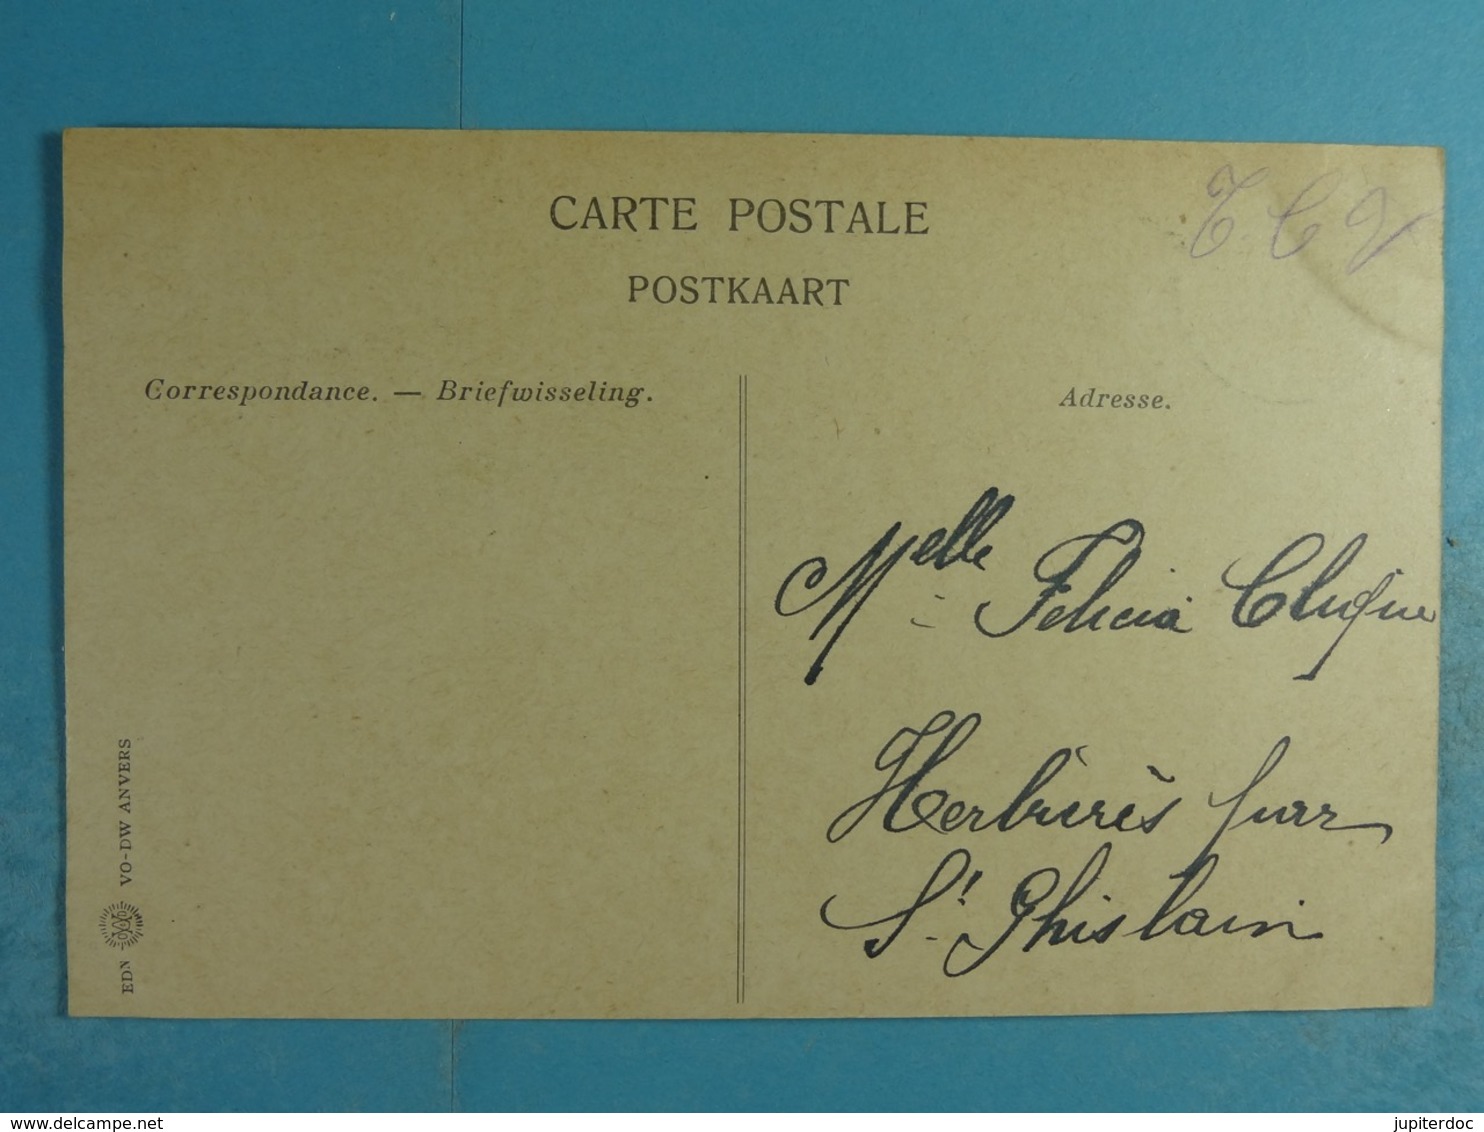 T C V
CARTE POSTALE
POSTKAART
Correspondance. — Briefwisseling.
Adresse.
Melle Felicia
Herbières par
St Ghislain
EDN VO-DW ANVERS
delcampe.net
jupiterdoc